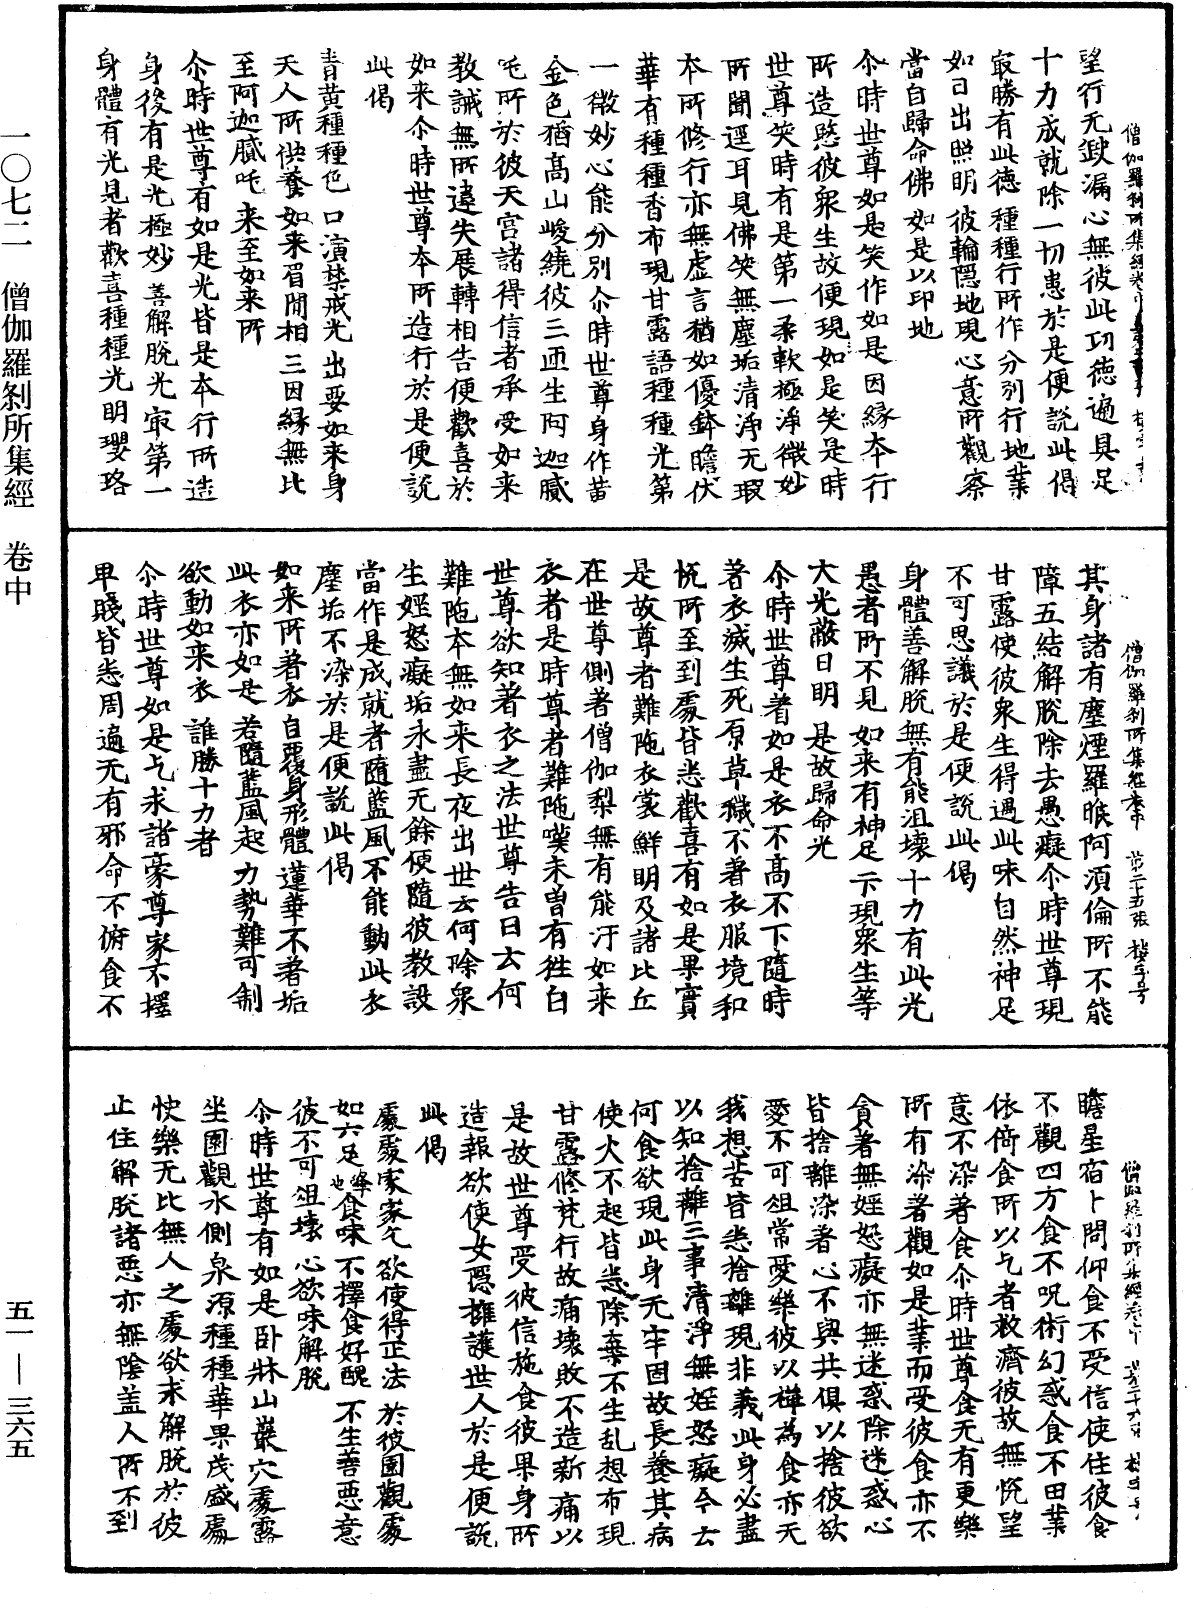 一〇七二　僧伽羅剎所集經　卷中
五一—三六五
望行无缺漏心無彼此功德遍具足
十力成就除一切患於是便說此偈
最勝有此德 種種行所作 分別行地業
如日出照明 彼輪隱地現 心意所觀察
當自歸命佛 如是以印地
尒時世尊如是笑作如是因緣本行
所造愍彼衆生故便現如是笑是時
世尊笑時有是第一柔軟極淨微妙
所聞逕耳見佛笑無塵垢清淨无瑕
本所修行亦無虛言猶如優鉢瞻伏
華有種種香布現甘露語種種光第
一微妙心能分別尒時世尊身作黃
金色猶高山峻繞彼三匝生阿迦膩
吒所於彼天宮諸得信者承受如來
教誡無所違失展轉相告便歡喜於
如来尒時世尊本所造行於是便說
此偈
青黃種種色 口演禁戒光 出要如来身
天人所供養 如来眉間相 三因緣無比
至阿迦膩吒 来至如来所
尒時世尊有如是光皆是本行所造
身後有是光極妙善解脫光寂第一
身體有光見者歡喜種種光明瓔珞
其身諸有塵煙羅睺阿須倫所不能
障五結解脫除去愚癡尒時世尊現
甘露使彼衆生得過此味自然神足
不可思議於是便說此偈
身體善解脫 無有能沮壞 十力有此光
愚者所不見 如来有神足 示現衆生等
大光蔽日明 是故歸命光
尒時世尊著如是衣不高不下隨時
著衣滅生死原草穢不著衣服境和
悅所至到處皆悉歡喜有如是果實
是故尊者難陁衣裳鮮明及諸比丘
在世尊側著僧伽梨無有能汙如来
衣者是時尊者難陁嘆未曽有往白
世尊欲知著衣之法世尊告曰云何
難陁本無如来長夜出世云何除衆
生婬怒癡垢永盡无餘便隨彼教設
當作是成就者隨藍風不能動此衣
塵垢不染於是便說此偈
如来所著衣 自覆身形體 蓮華不著垢
此衣亦如是 若隨藍風起 力勢難可制
欲動如来衣 誰勝十力者
尒時世尊如是乞求諸豪尊家不擇
卑賤皆悉周遍无有邪命不俯食不
瞻星宿卜問仰食不受信使住彼食
不觀四方食不呪術幻惑食不田業
依倚食所以乞者救濟彼故無悕望
意不染著食尒時世尊食无有更樂
所有染著觀如是業而受彼食亦不
貪著無婬怒癡亦無迷惑除迷惑心
皆捨離染著心不與共俱以捨彼欲
愛不可俎常愛樂彼以禪為食亦无
我想苦皆悉捨離現非義此身必盡
以知捨離三事清淨無婬怒癡今云
何食欲現此身无牢固故長養其病
使火不起皆悉除棄不生乱想布現
甘露修梵行故痛壞敗不造新痛以
是故世尊受彼信施食彼果身所
造報欲使女隱擁護世人於是便說
此偈
處處家家乞 欲使得正法 於彼園觀處
如六足蜂也食味 不擇食好醜 不生善惡意
彼不可俎壞 心欲味解脫
尒時世尊有如是卧牀山巖穴處露
坐園觀水側泉源種種華果茂盛處
快樂无比無人之處欲求解脫於彼
止住解脫諸惡亦無陰盖人所不到